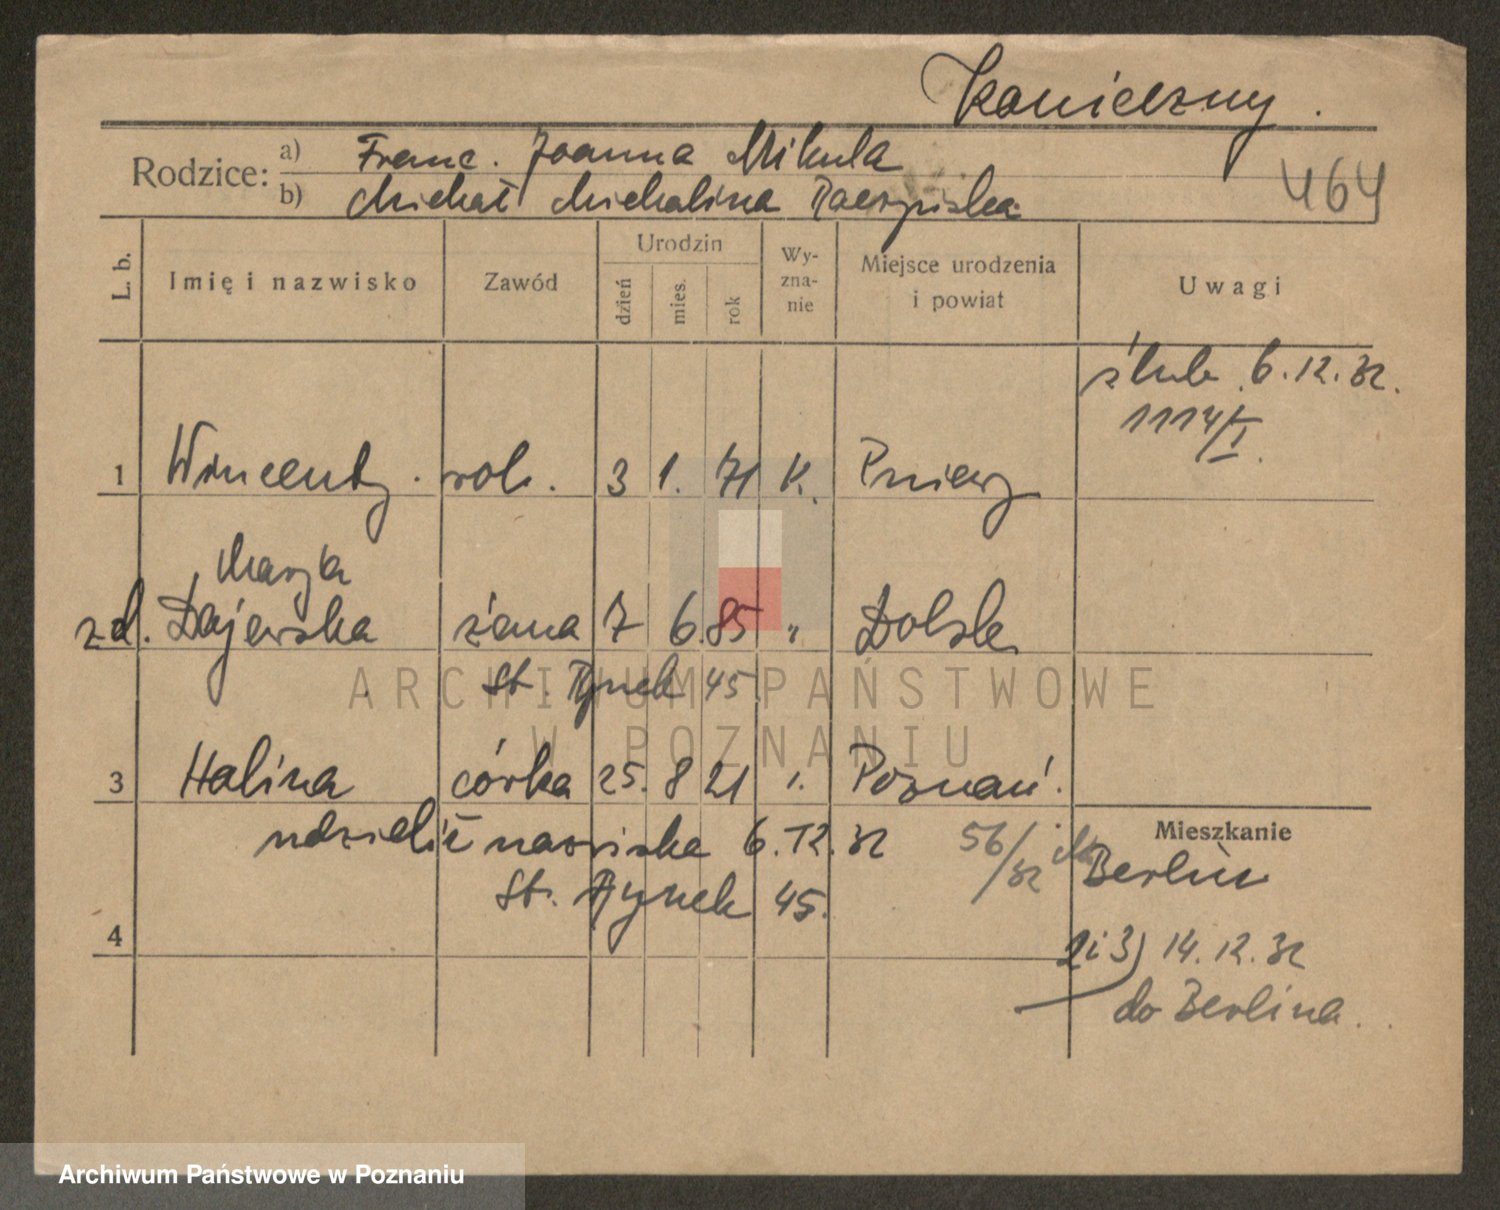 Konieczny.
Rodzice: a) Franc. Joanna Mikula
b) Michał Michalina Raczyńska
464
L. b. Imię i nazwisko Zawód Urodzin dzień mies. rok Wyznanie Miejsce urodzenia i powiat Uwagi
ślub 6.12.32.
1114/I.
1 Wincenty. rob. 3 1. 71 K. Pniewy
Marja
zd. Dajewska żona 7 6. 85 " Dolsk
St. Rynek 45
3 Halina córka 25. 8 21 ". Poznań.
udzielił nazwiska 6.12.32 56/32
Mieszkanie
Berlin
St. Rynek 45.
4
2 i 3) 14.12.32
do Berlina..
ARCHIWUM PAŃSTWOWE
W POZNANIU
Archiwum Państwowe w Poznaniu